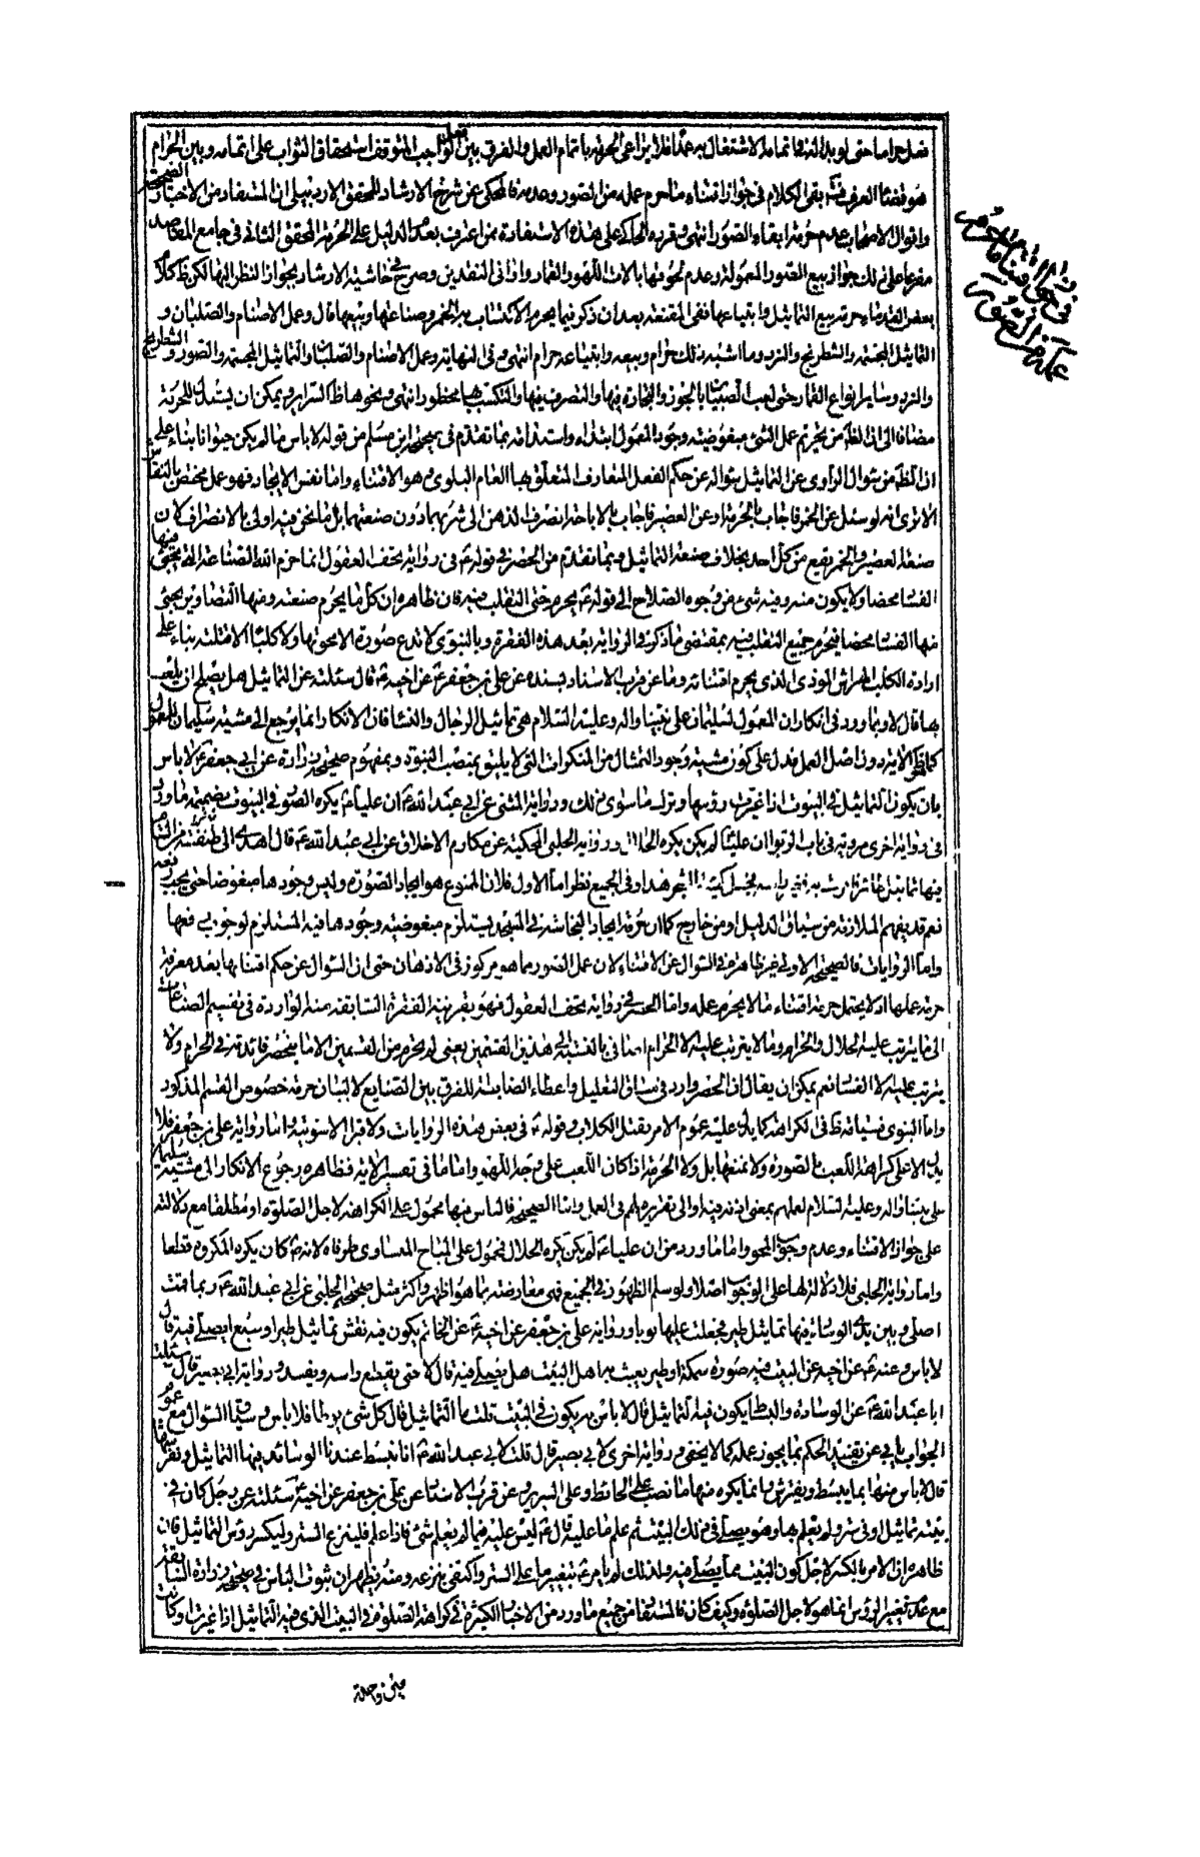 فعل حراما حتى لو بدا له فى اتمامه الاشتغال به عمدا فلا يراعى الحرمة باتمام العمل والفرق بين فعل الواجب المتوقف استحقاق الثواب على اتمامه وبين الحرام
هو قضاء العرف بقى الكلام فى جواز اقتناء ما حرم عمله من الصور وعدمه فالمحكى عن شرح الارشاد للمحقق الاردبيلى ان المستفاد من الاخبار الصحيحة
واقوال الاصحاب عدم حرمة ابقاء الصور انتهى وقرره الحاكى على هذه الاستفادة ممن اعترف بعدم الدليل على الحرمة المحقق الثانى فى جامع المقاصد
مفرعا على ذلك جواز بيع الصور المعمولة وعدم لحوقها بالات اللهو والقمار واوانى النقدين وصرح فى حاشية الارشاد بجواز النظر اليها لكن ظ كلام
بعض القدماء حرمة بيع التماثيل وابتياعها ففى المقنعة بعد ان ذكر فيما يحرم الاكتساب به الخمر وصناعتها وبيعها قال وعمل الاصنام والصلبان و
التماثيل المجسمة والشطرنج والنرد وما اشبه ذلك حرام وبيعه وابتياعه حرام انتهى وفى النهاية وعمل الاصنام والصلبان والتماثيل المجسمة والصور والشطرنج
والنرد وساير انواع القمار حتى لعب الصبيان بالجوز والتجارة فيها والتصرف فيها والتكسب بها محظور انتهى ونحوها ظ السرائر ويمكن ان يستدل للحرمة
مضافا الى ان الظ من تحريم عمل الشئ مبغوضية وجود المعمول ابتداء واستدامة بما تقدم فى صحيحة ابن مسلم من قوله لا باس ما لم يكن حيوانا بناء على
ان الظ من سؤال الراوى عن التماثيل سؤاله عن حكم الفعل المتعارف المتعلق بها العام البلوى وهو الاقتناء واما نفس الايجاد فهو عمل مختص بالنقاش
الا ترى انه لو سئل عن الخمر فاجاب بالحرمة او عن العصير فاجاب بالاباحة انصرف الذهن الى شربهما دون صنعتهما بل ما نحن فيه اولى بالانصراف لان
صنعة العصير والخمر يقع من كل احد بخلاف صنعة التماثيل وبما تقدم من الحصر فى قوله ع فى رواية تحف العقول انما حرم الله الصناعة التى يجيئ منها
الفساد محضا ولا يكون منه وفيه شئ من وجوه الصلاح الى قوله ع يحرم جميع التقلب فيه فان ظاهره ان كل ما يحرم صنعته ومنها التصاوير يجيئ
منها الفساد محضا فيحرم جميع التقلب فيه بمقتضى ما ذكر فى الرواية بعد هذه الفقرة وبالنبوى لا تدع صورة الا محوتها ولا كلبا الا قتلته بناء على
ارادة الكلب الهراش الموذى الذى يحرم اقتنائه وما عن قرب الاسناد بسنده عن على بن جعفر ع عن اخيه ع قال سئلته عن التماثيل هل يصلح ان يلعب
بها قال لا وبما ورد فى انكار ان المعمول لسليمان على نبينا واله وعليه السلام هى تماثيل الرجال والنساء فان الانكار انما يرجع الى مشية سليمان للمعمول
كما هو ظ الاية دون اصل العمل فدل على كون مشية وجود التمثال من المنكرات التى لا يليق بمنصب النبوة وبمفهوم صحيحة زرارة عن ابى جعفر ع لا باس
بان يكون التماثيل فى البيوت اذا غيرت رؤسها وترك ما سوى ذلك ورواية المثنى عن ابى عبد الله ع ان عليا ع يكره الصور فى البيوت بضميمة ما ورد
فى رواية اخرى مروية فى باب الربوا ان عليا لم يكن يكره الحلال ورواية الحلبى المحكية عن مكارم الاخلاق عن ابى عبد الله ع قال اهديت الى طنفسة من الشام
فيها تماثيل طائر فامرت به فغير راسه فجعل كهيئة الشجر هذا وفى الجميع نظر اما الاول فلان الممنوع هو ايجاد الصورة وليس وجودها مبغوضا حتى يجب رفعه
نعم قد يفهم الملازمة من سياق الدليل او من خارج كما ان حرمة ايجاد النجاسة فى المسجد يستلزم مبغوضية وجودها فيه المستلزم لوجوب رفعها
واما الروايات فالصحيحة الاولى غير ظاهرة فى السؤال عن الاقتناء لان عمل الصور مما هو مركوز فى الاذهان حتى ان السؤال عن حكم اقتنائها بعد معرفة
حرمة عملها اذ لا يحتمل حرمة اقتناء ما لا يحرم عمله واما الحصر فى رواية تحف العقول فهو بقرينة الفقرة السابقة منه الواردة فى تقسيم الصناعات
الى ما يترتب عليه الحلال والحرام وما لا يترتب عليه الا الحرام اضافى بالنسبة الى هذين القسمين يعنى لم يحرم من القسمين الا ما ينحصر فائدته فى الحرام ولا
يترتب عليه الا الفساد نعم يمكن ان يقال ان الحصر وارد فى مساق التعليل واعطاء الضابطة للفرق بين الصنايع لا لبيان حرمة خصوص القسم المذكور
واما النبوى فسياقه ظ فى الكراهة كما يدل عليه عموم الامر بقتل الكلاب وقوله ع فى بعض هذه الروايات ولا قبرا الا سويته واما رواية على بن جعفر فلا
يدل الا على كراهة اللعب بالصورة ولا نمنعها بل ولا الحرمة اذا كان اللعب على وجه اللهو واما ما فى تفسير الاية فظاهره رجوع الانكار الى مشية سليمان
على نبينا واله وعليه السلام لعملهم بمعنى اذنه فيه او الى تقريره لهم فى العمل واما الصحيحة فالباس فيها محمول على الكراهة لاجل الصلوة او مطلقا مع دلالته
على جواز الاقتناء وعدم وجوب المحو واما ما ورد من ان عليا ع لم يكن يكره الحلال فمحمول على المباح المتساوى طرفاه لانه ع كان يكره المكروه قطعا
واما رواية الحلبى فلا دلالة لها على الوجوب اصلا ولو سلم الظهور فى الجميع فهى معارضة بما هو اظهر واكثر مثل صحيحة الحلبى عن ابى عبد الله ع ربما قمت
اصلى وبين يدى الوسادة فيها تماثيل طير فجعلت عليها ثوبا ورواية على بن جعفر عن اخيه ع عن الخاتم يكون فيه نقش تماثيل طير او سبع ايصلى فيه قال
لا باس وعنه ع عن اخيه عن البيت فيه صورة سمكة او طير يعبث به اهل البيت هل يصلى فيه قال لا حتى يقطع راسه ويفسد ورواية ابى بصير قال سئلت
ابا عبد الله ع عن الوسادة والبساط يكون فيه التماثيل قال لا باس به يكون فى البيت قلت ما التماثيل قال كل شئ يوطا فلا باس به وسياق السؤال مع عموم
الجواب يابى عن تقييد الحكم بما يجوز عمله كما لا يخفى ورواية اخرى لابى بصير قال قلت لابى عبد الله ع انا نبسط عندنا الوسائد فيها التماثيل ونفرشها
قال لا باس منها بما يبسط ويفترش ويوطا انما يكره منها ما نصب على الحائط وعلى السرير وعن قرب الاسناد عن على بن جعفر عن اخيه ع سئلته عن رجل كان فى
بيته تماثيل او فى ستر ولم يعلم بها وهو يصلى فى ذلك البيت ثم علم ما عليه قال ع ليس عليه فيما لم يعلم شئ فاذا علم فلينزع الستر وليكسر رؤس التماثيل فان
ظاهره ان الامر بالكسر لاجل كون البيت مما يصلى فيه ولذلك لم يامر ع بتغيير ما على الستر واكتفى بنزعه ومنه يظهر ان ثبوت الباس فى صحيحة زرارة السابقة
مع عدم تغيير الرؤس انما هو لاجل الصلوة وكيف كان فالمستفاد من جميع ما ورد من الاخبار الكثيرة فى كراهة الصلوة فى البيت الذى فيه التماثيل اذا غيرت او كانت
فى جواز اقتناء ما حرم
عمله من الصور